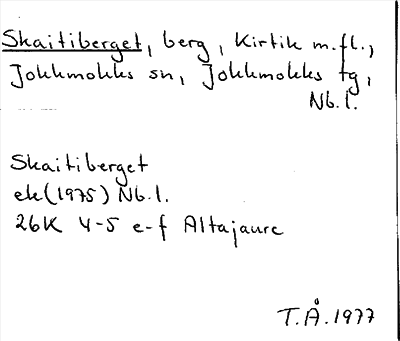 Skaitiberget, berg, Kirtik m.fl.,
Jokkmokks sn, Jokkmokks tg,
Nb.l.
Skaitiberget
ek(1975) Nb.l.
26K 4-5 e-f Altajaure
T.Å.1977